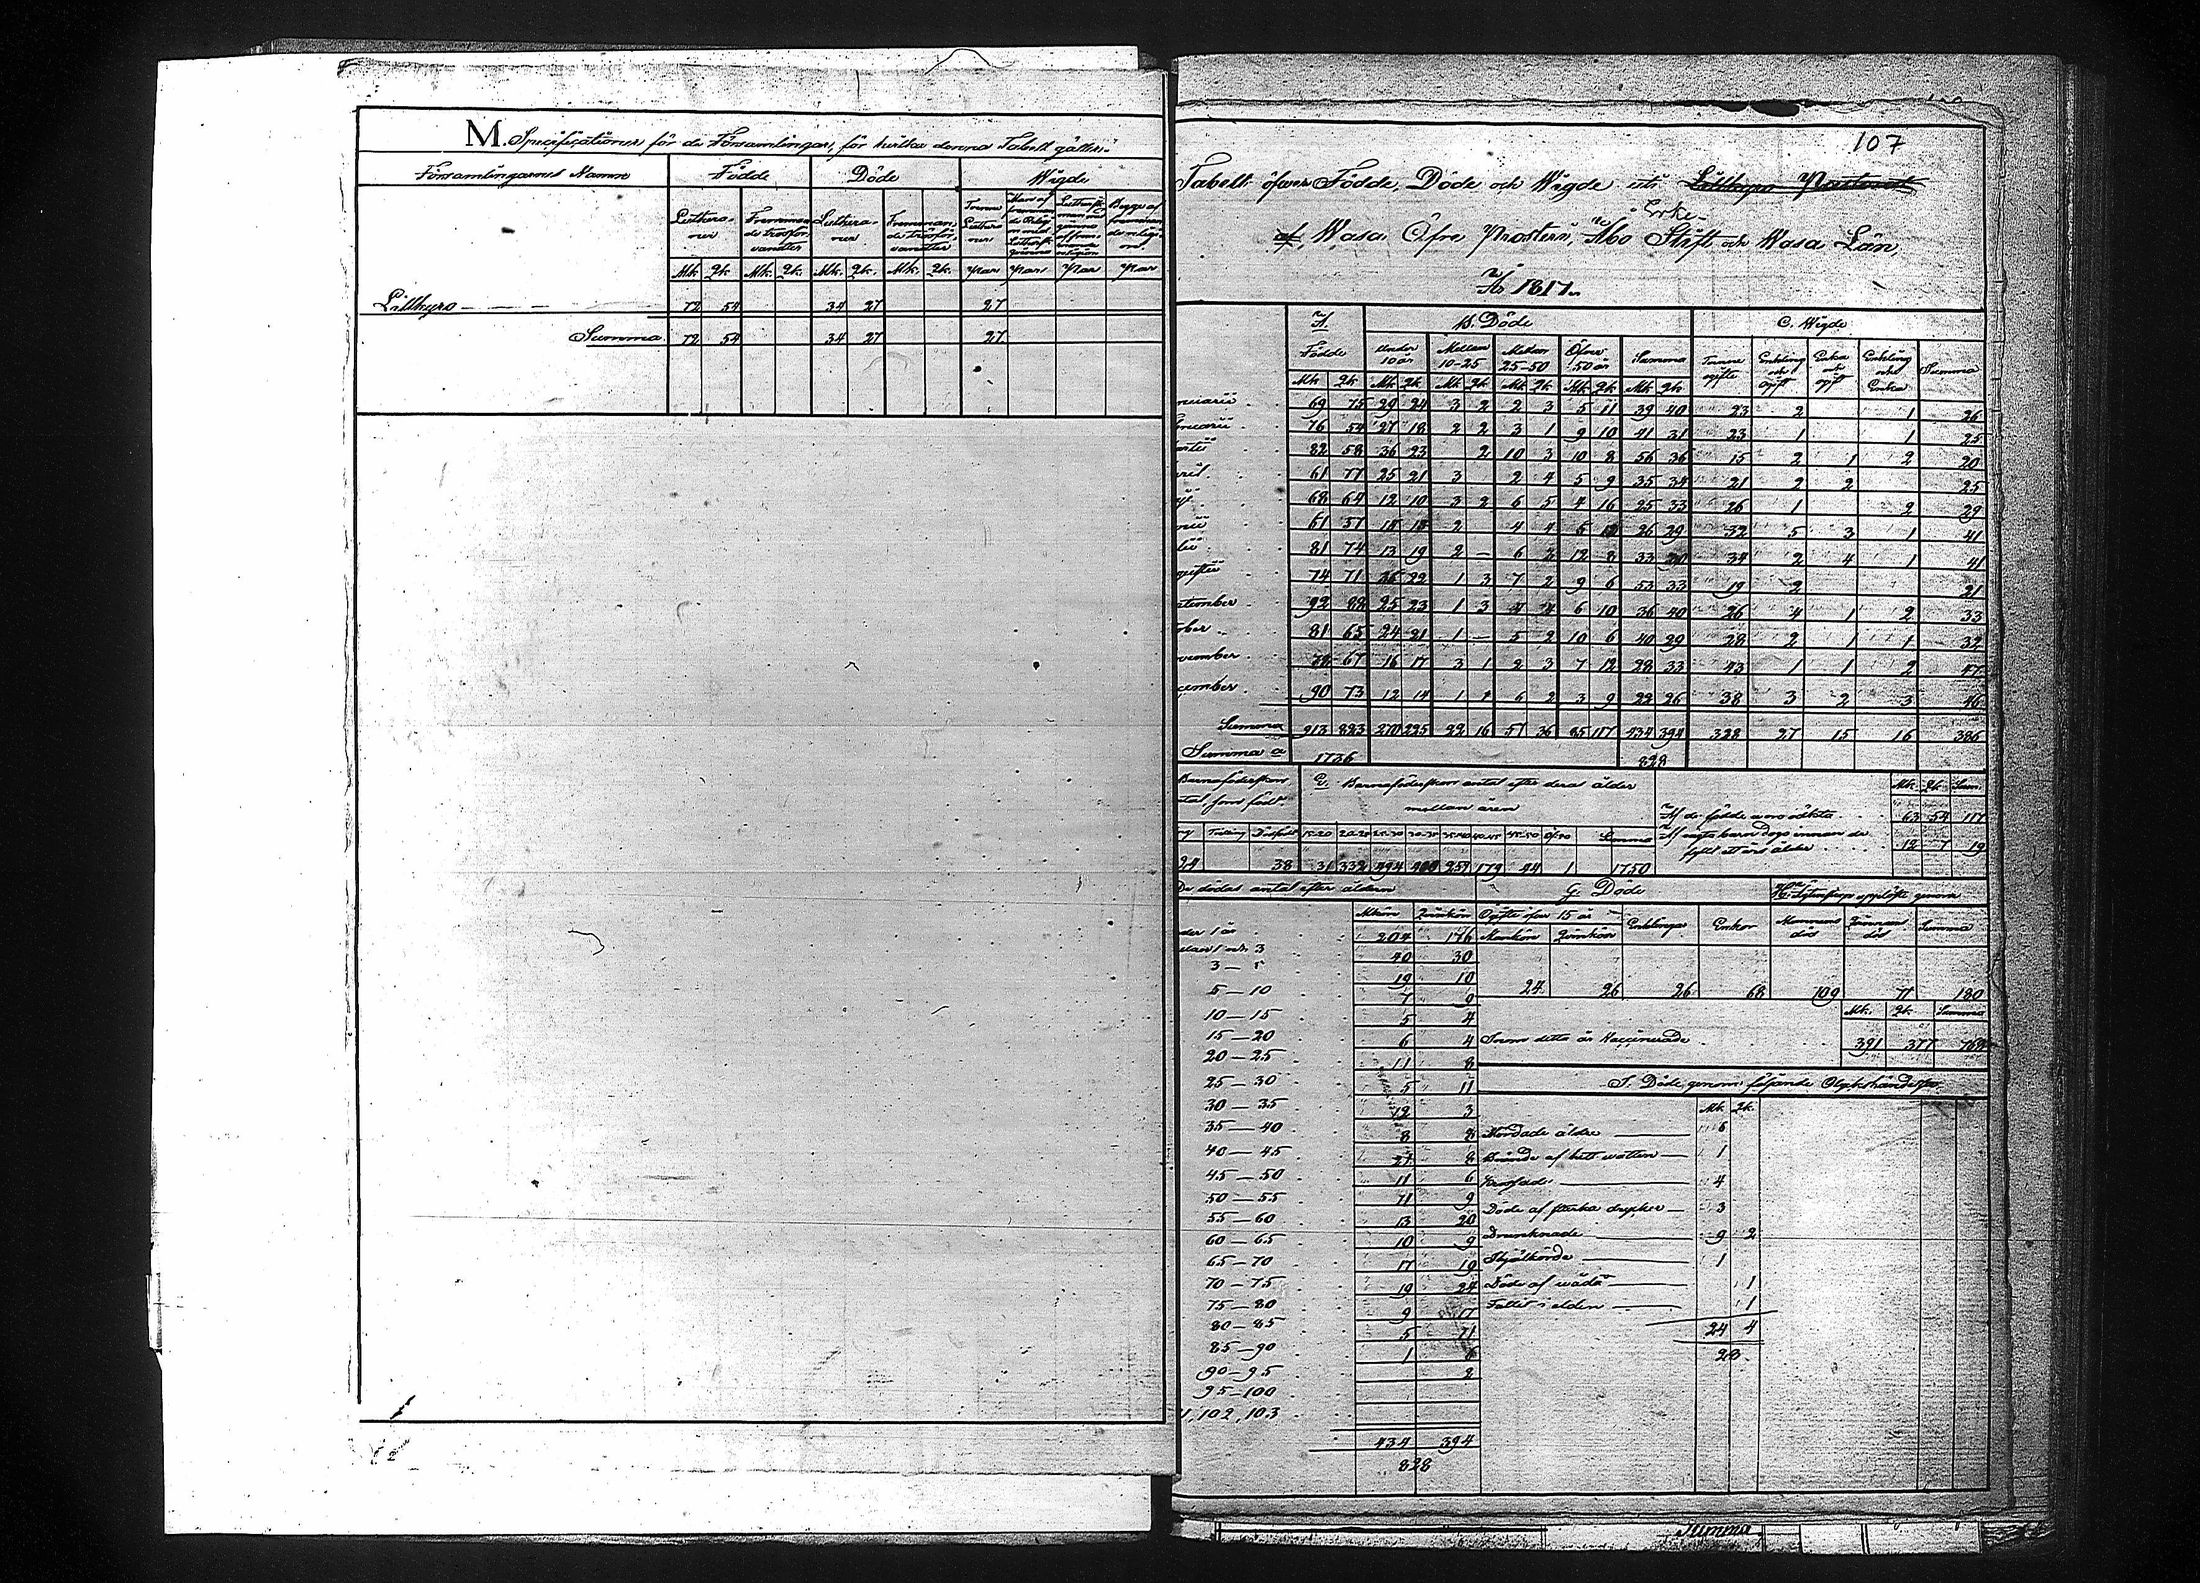 M. Specifikationer för de Församlingar, för hvilka denna Tabell gäller.
Församlingarnes Namn Födde Döde Wigde
Luthera-ner Främmande trosförvanter Luthera-ner Främmande trosförvanter
Mk. Qk. Mk. Qk. Mk. Qk. Mk. Qk. Par Par Par Par
Lillkyro 72 54 34 27 27
Summa 72 54 34 27 27
107
Tabell öfver Födde, Döde och Wigde uti Lillkyro Pastorat
Erke-
af Wasa Öfre Prosteri, Åbo Stift och Wasa Län,
År 1817.
A. Födde B. Döde C. Wigde
Under 10 år Mellan 10-25 Mellan 25-50 Öfver 50 år Summa Enkling och ogift Enka och ogift Enkling och Enka Summa
Mk Qk Mk Qk Mk Qk Mk Qk Mk Qk Mk Qk
nuarii 69 75 29 24 3 2 2 3 5 11 39 40 23 2 1 26
bruarii 76 54 27 18 2 2 3 1 9 10 41 31 23 1 1 25
artii 82 58 36 23 2 10 3 10 8 56 36 15 2 1 2 20
ril 61 77 25 21 3 2 4 5 9 35 34 21 2 2 25
68 64 12 10 3 2 6 5 4 16 25 33 26 1 2 29
nii 61 57 2 4 4 26 29 32 5 3 1 41
lii 81 74 13 19 2 — 6 2 12 8 33 34 2 4 1 41
gusti 74 71 22 1 3 7 2 9 6 53 33 19 2 21
ptember 92 88 25 23 1 3 4 4 6 10 36 40 26 4 1 2 33
tober 81 65 24 21 1 — 5 2 10 6 40 29 28 2 1 1 32
ovember 78 67 16 17 3 1 2 3 7 12 28 33 43 1 1 2 47
cember 90 73 12 14 1 1 6 2 3 9 22 26 38 3 2 3 46
Summa 913 823 270 225 22 16 57 36 85 117 434 394 328 27 15 16 386
Summa 1736 828
E. Barnaföderskors antal efter deras ålder
mellan åren
Mk. Qk. Sum.
Af de födde woro oäkta 63 54 117
Af oägta barn dogo innan de
fyllt ett års ålder 12 7 19
Tvilling Dödfödt 15-20 20-25 25-30 30-35 35-40 40-45 45-50 Öfv. 50 Summa
24 38 31 332 494 259 179 44 1 1750
De dödas antal efter åldern G. Döde
Mkön Qvinkön Ogifte öfver 15 år Enklingar Enkor Mannens död Summa
Mankön Qvinkön
der 1 år 204 176
mellan 1 och 3 40 30
3 — 5 19 10
5 — 10 7 9
24 26 26 68 109 71 180
Mk. Qk. Summa
10 — 15 5 4
15 — 20 6 4
Inom detta år Vaccinerade 391 377 768
20 — 25 11 8
I. Döde genom följande Olyckshändelser
25 — 30 5 11
Mk. Qk.
30 — 35 12 3
35 — 40 8 8
Mördade äldre 6
40 — 45 21 8
Brände af hett watten 1
45 — 50 11 6
4
50 — 55 11 9
Döde af starka drycker 3
55 — 60 13 20
Drunknade 9 2
60 — 65 10 9
Ihjälkörde 1
65 — 70 17 19
Döde af wåda 1
70 — 75 19 24
Fallit i elden 1
75 — 80 9 17
24 4
80 — 85 5 11
28
85 — 90 1 6
90 — 95 2
95 — 100
1, 102, 103
434 394
828
Summa